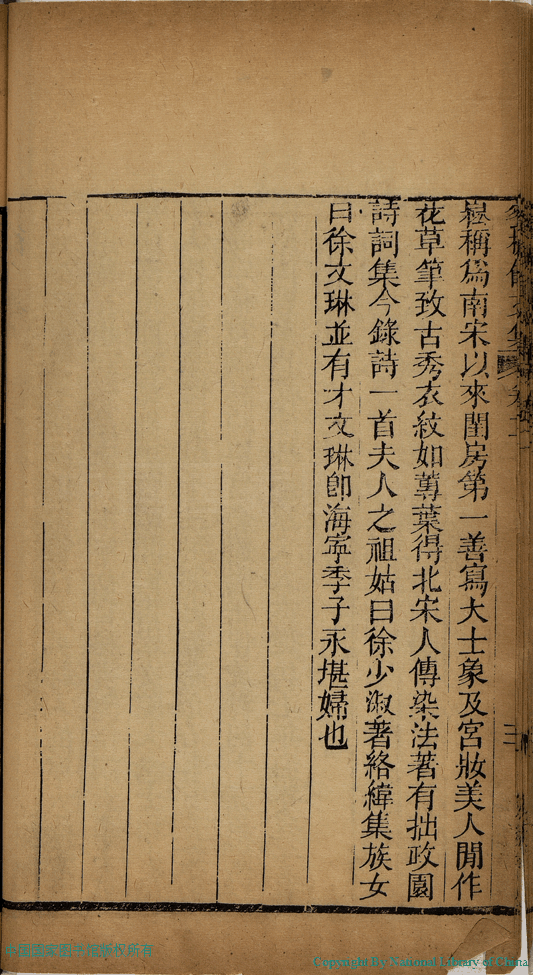 嶽稱爲南宋以來閨房第一善寫大士象及宮妝美人閒作
花草筆致古秀衣紋如蓴葉得北宋人傳染法著有拙政園
詩詞集今錄詩一首夫人之祖姑曰徐少淑著絡緯集族女
曰徐文琳並有才文琳卽海寧季子永堪婦也
三
中国国家图书馆版权所有
Copyright By National Library of China